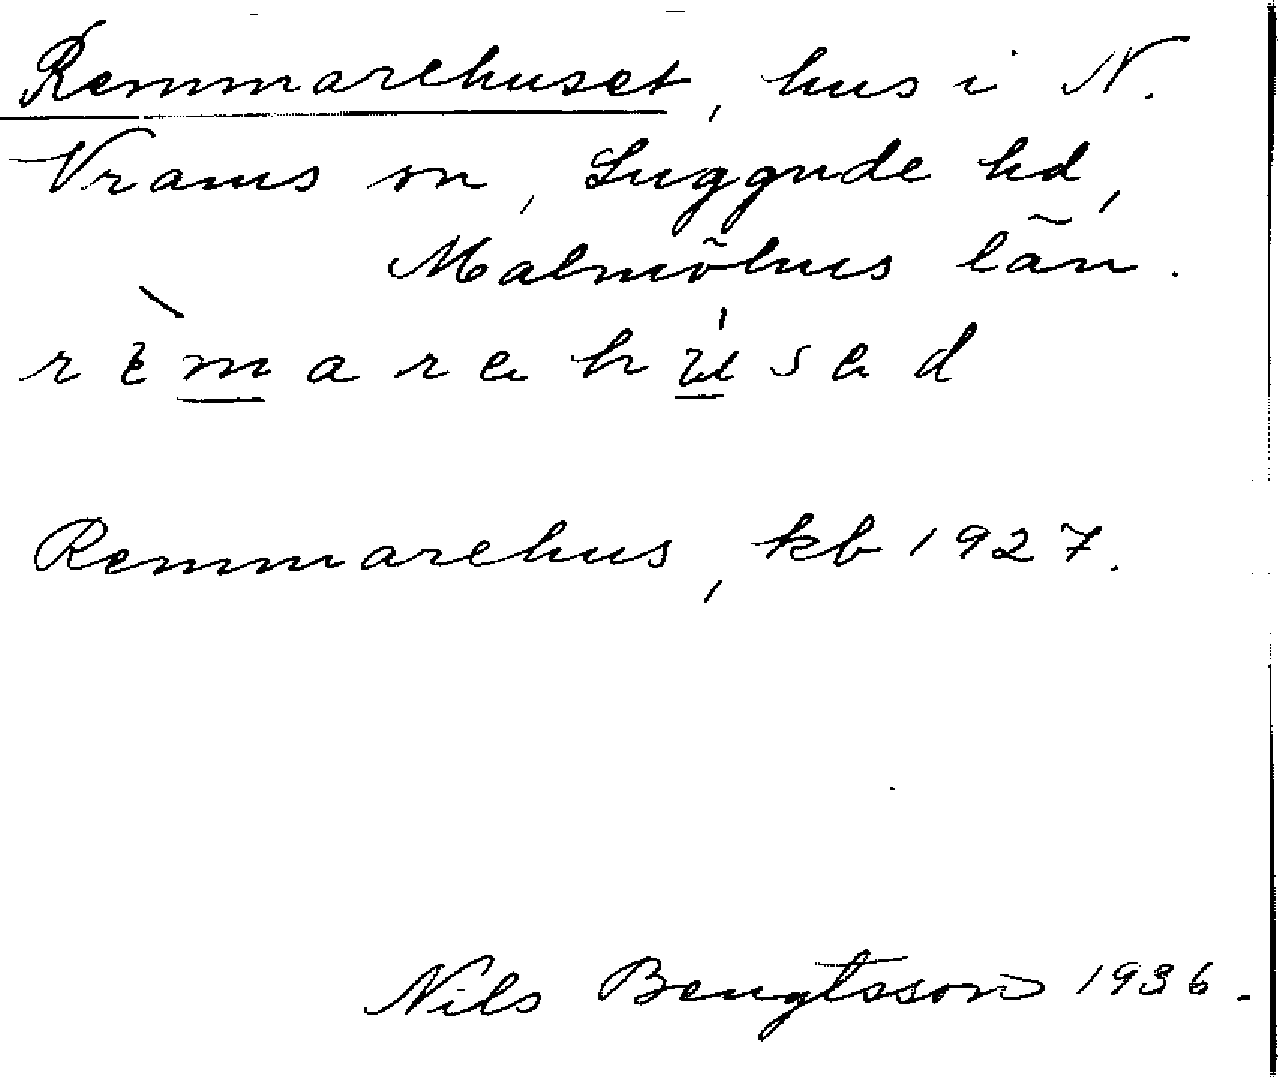 Remmarehuset, hus i N.
Vrams sn, Luggude hd,
Malmöhus län.
Remmarehus, kb 1927.
Nils Bengtsson 1936.